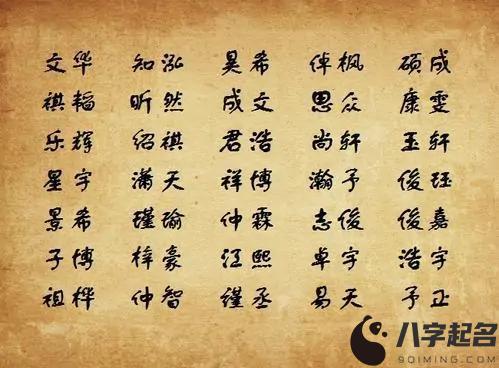 文华 知泓 昊希 倬枫 硕成
祺韬 昕然 成文 思众 康雯
乐辉 绍祺 君浩 尚轩 玉轩
星宇 潇天 祥博 瀚予 俊珏
景希 瑾瑜 仲霖 志俊 俊嘉
子博 梓豪 江熙 卓宇 浩宇
祖桦 仲智 谨丞 易天 予正
八字起名
9QIMING.COM